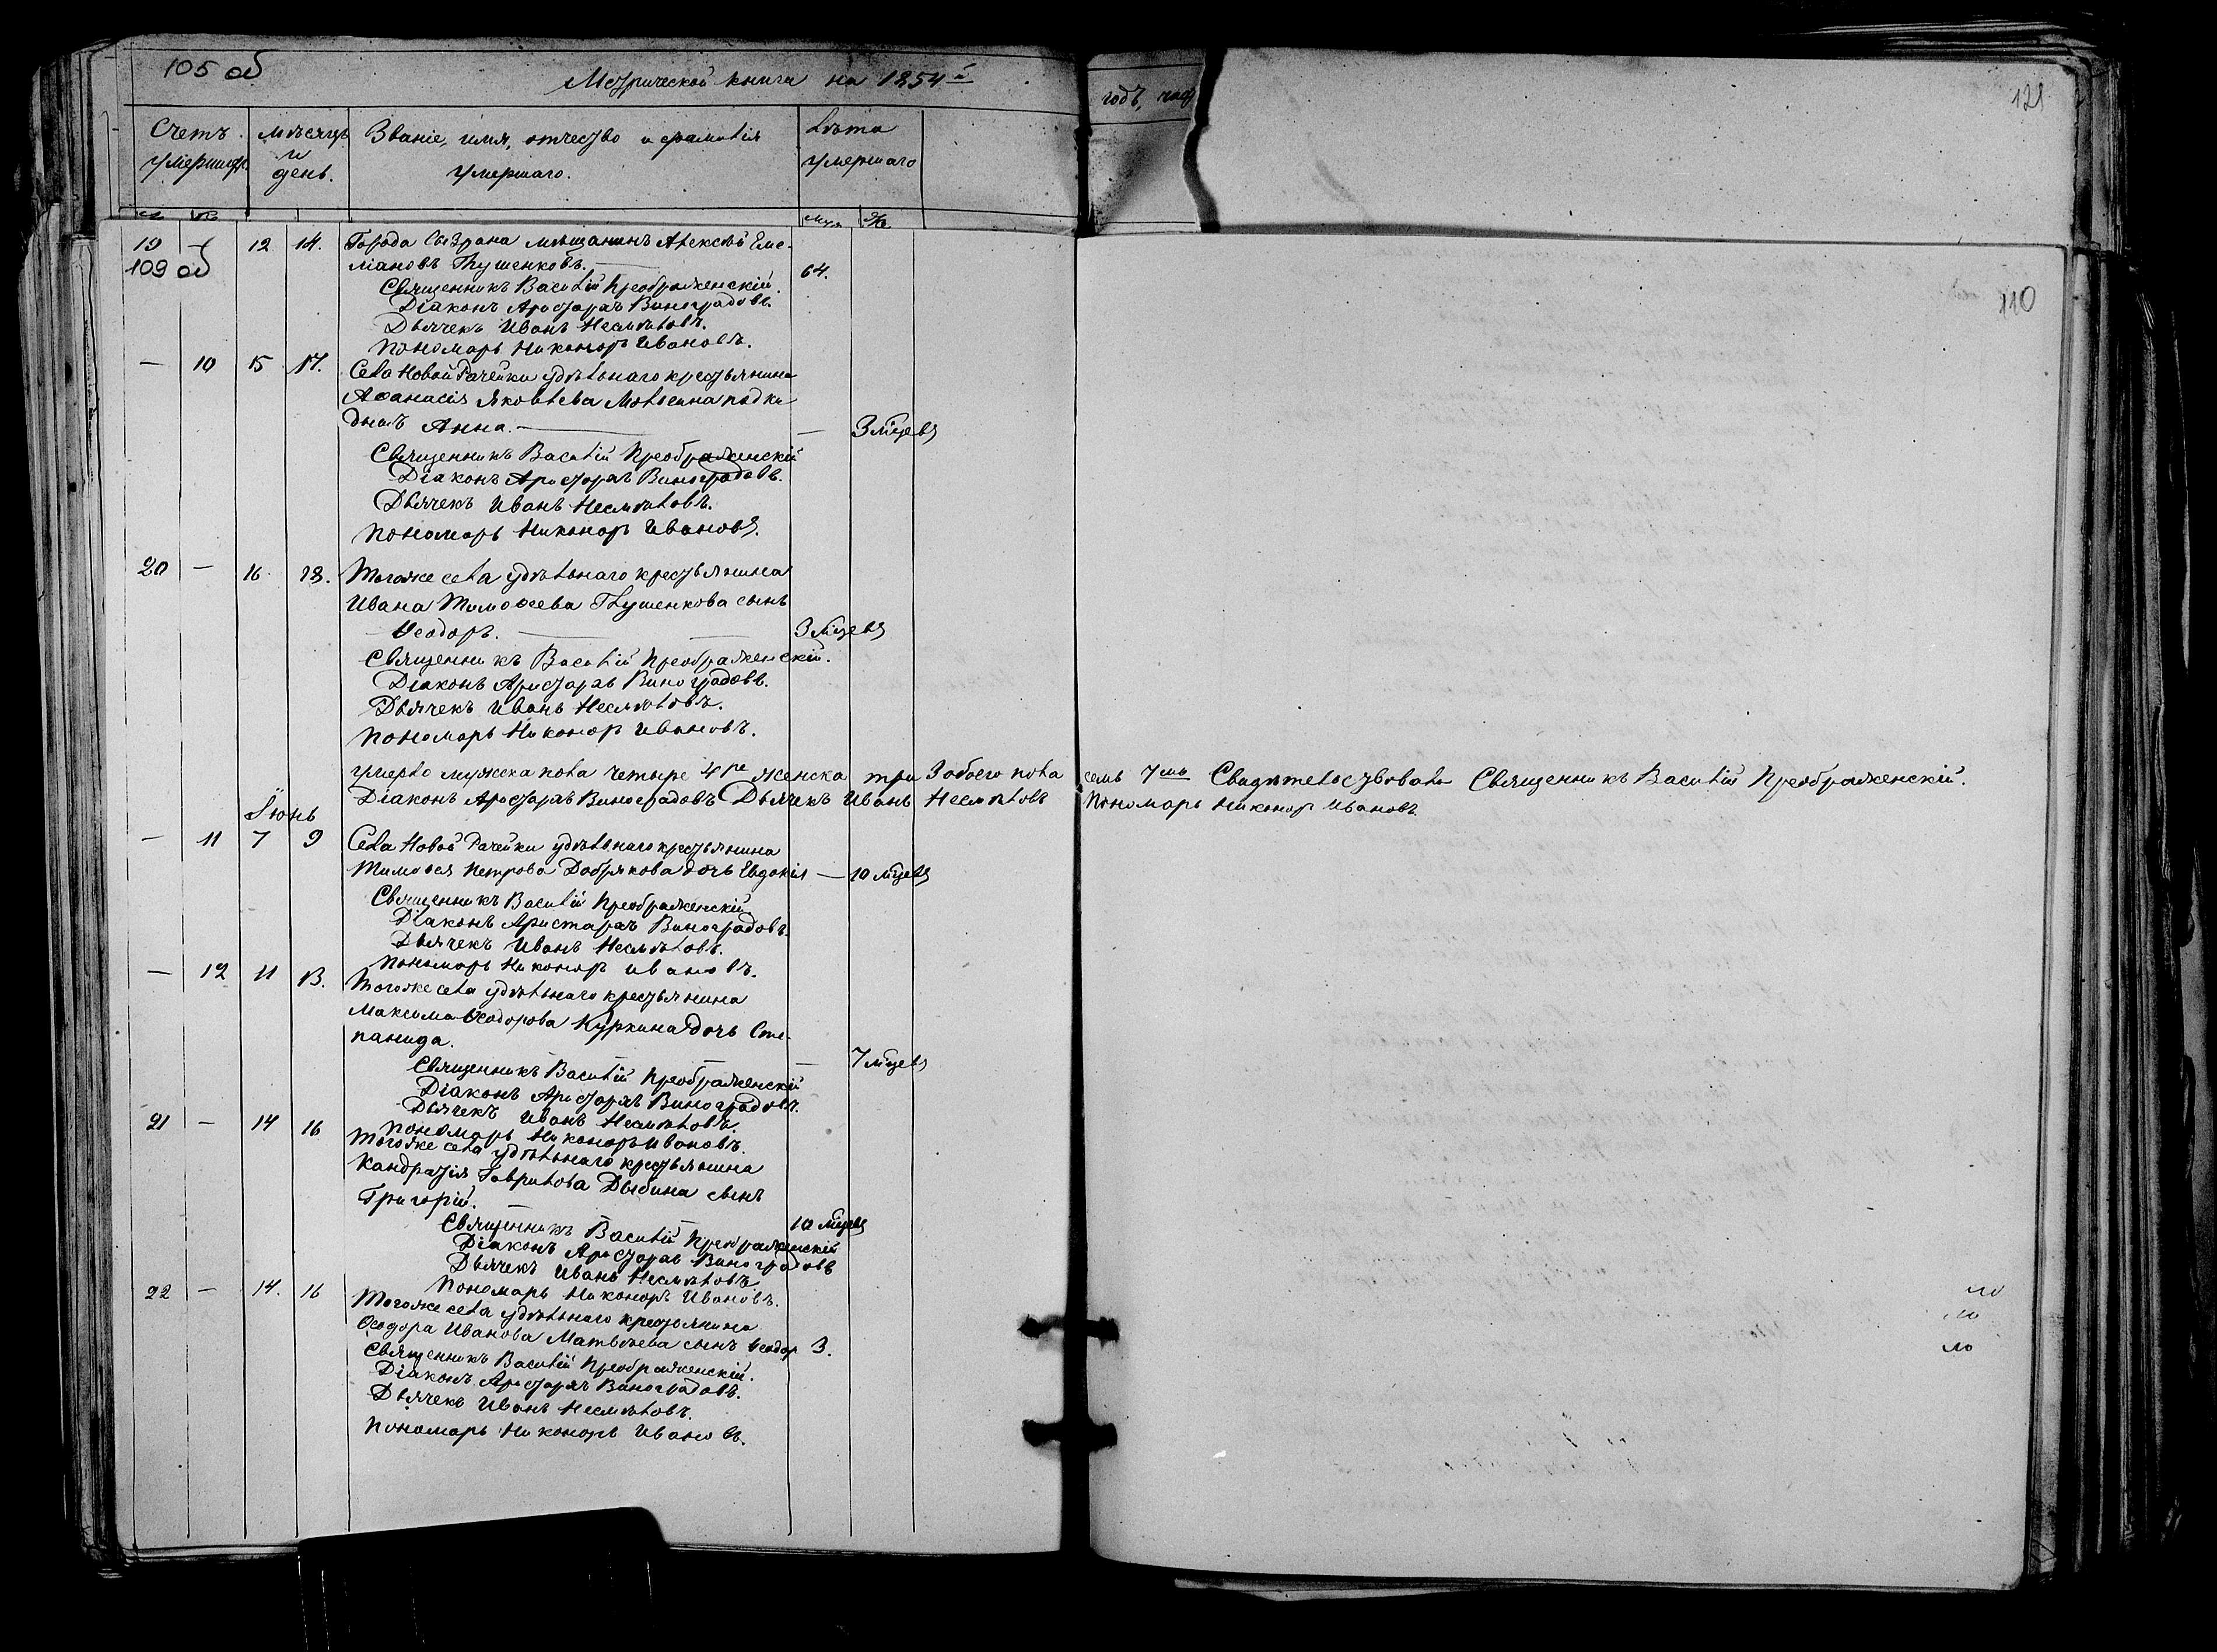 105 об
Метрической книги на 1854 й
годъ, час
121
Счетъ умершихъ.
Мѣсяцъ и день.
Званіе, имя, отчество и фамилія умершаго.
Лѣта умершаго
муж. ж.
19 — 12 14. Города Сызрана мѣщанинъ Алексѣй Еме-
109 об
ліановъ Глушенковъ. — 64.
110
Священникъ Василій Преображенскій.
Діаконъ Аристархъ Виноградовъ.
Дьячекъ Иванъ Несмѣловъ.
Пономарь Никаноръ Ивановъ.
— 10 15 17. Села Новой Рачейки удѣльнаго крестьянина
Аѳанасія Яковлева подки
дышъ Анна. — — 3 мѣсцевъ
Священникъ Василій Преображенскій
Діаконъ Аристархъ Виноградовъ.
Дьячекъ Иванъ Несмѣловъ.
Пономарь Никаноръ Ивановъ.
20 — 16 18. Тогоже села удѣльнаго крестьянина
Ивана Тимоѳеева Глушенкова сынъ
Ѳеодоръ. — 3 мѣсцевъ
Священникъ Василій Преображенскій.
Діаконъ Аристархъ Виноградовъ.
Дьячекъ Иванъ Несмѣловъ.
Пономарь Никаноръ Ивановъ.
Умерло мужска пола четыре 4ре женска три 3 обоего пола семь 7мь Свидѣтельствовали Священникъ Василій Преображенскій.
Діаконъ Аристархъ Виноградовъ Дьячекъ Иванъ Несмѣловъ Пономарь Никаноръ Ивановъ.
Іюнь
— 11 7 9 Села Новой Рачейки удѣльнаго крестьянина
Тимоѳея Петрова Добрякова дочь Евдокія — 10 мѣсцевъ
Священникъ Василій Преображенскій
Діаконъ Аристархъ Виноградовъ.
Дьячекъ Иванъ Несмѣловъ.
Пономарь Никаноръ Ивановъ.
— 12 11 13. Тогоже села удѣльнаго крестьянина
Максима Ѳеодорова Куркина дочь Сте-
панида. — 7 мѣсцевъ
Священникъ Василій Преображенскій
Діаконъ Аристархъ Виноградовъ.
Дьячекъ Иванъ Несмѣловъ.
Пономарь Никаноръ Ивановъ.
21 — 14 16 Тогоже села удѣльнаго крестьянина
Кандратія Гаврилова Дыбина сынъ
Григорій. 10 мѣсцевъ
Священникъ Василій Преображенскій
Діаконъ Аристархъ Виноградовъ
Дьячекъ Иванъ Несмѣловъ
Пономарь Никаноръ Ивановъ.
22 — 14. 16 Тогоже села удѣльнаго крестьянина
Ѳеодора Иванова Матвѣева сынъ Ѳеодор 3.
Священникъ Василій Преображенскій.
Діаконъ Аристархъ Виноградовъ.
Дьячекъ Иванъ Несмѣловъ.
Пономарь Никаноръ Ивановъ.